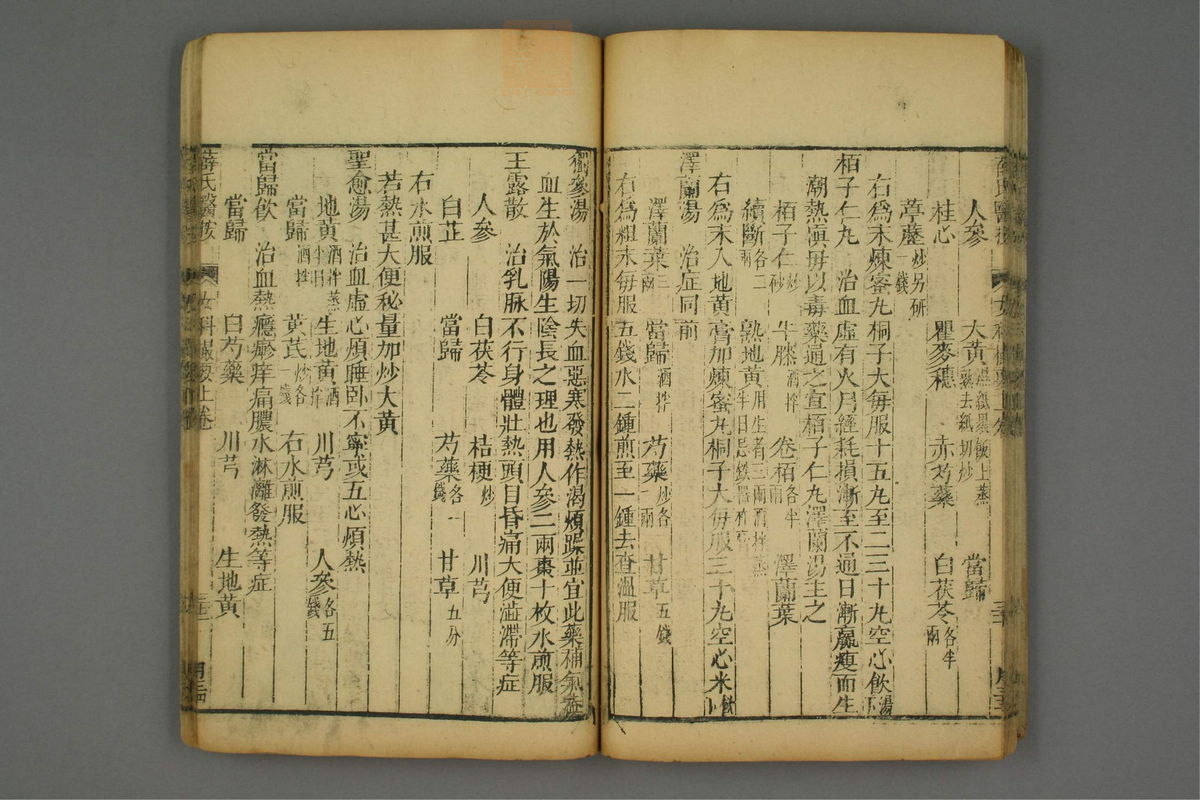 人參　大黃濕紙裹飯上蒸熟去紙切炒　當歸
桂心　瞿麥穗　赤芍藥　白茯苓各半兩
葶藶炒另研一錢
右為末煉蜜丸桐子大每服十五丸至二三十丸空心飲湯下
栢子仁丸　治血虛有火月經耗損漸至不通日漸羸瘦而生
潮熱慎毋以毒藥通之宜栢子仁丸澤蘭湯主之
栢子仁炒　牛膝酒拌　卷栢各半兩　澤蘭葉
續斷各二兩　熟地黃用生者三兩酒拌蒸半日忌鐵器
右為末入地黃膏加煉蜜丸桐子大每服三十丸空心米飲下
澤蘭湯　治症同前
澤蘭葉三兩　當歸酒拌　芍藥炒各一兩　甘草五錢
右為粗末每服五錢水二鍾煎至一鍾去渣溫服
獨參湯　治一切失血惡寒發熱作渴煩躁並宜此藥補氣蓋
血生於氣陽生陰長之理也用人參二兩棗十枚水煎服
玉露散　治乳脉不行身體壯熱頭目昏痛大便澁滯等症
人參　白茯苓　桔梗炒　川芎
白芷　當歸　芍藥各一錢　甘草五分
右水煎服
若熱甚大便秘量加炒大黃
聖愈湯　治血虛心煩睡卧不寧或五心煩熱
地黃酒拌蒸半日　生地黃酒拌　川芎　人參各五錢
當歸酒拌　黃芪炒各一錢　右水煎服
當歸飲　治血熱癮疹痒痛膿水淋漓發熱等症
當歸　白芍藥　川芎　生地黃
薛氏醫按　女科撮要上卷